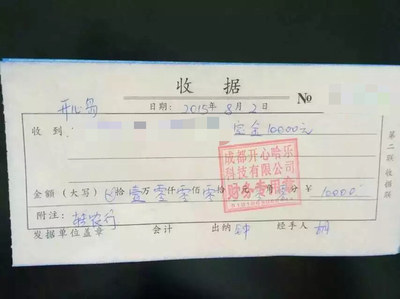 收据
开心岛
日期: 2015年8月2日 №
收到: 定金10000元
成都开心哈乐
科技有限公司
财务专用章
金额（大写）⊗拾壹万零仟零佰零拾零元零角零分 ¥10000元
附注: 转农行
发据单位盖章 会计 出纳 经手人
第二联 收据联